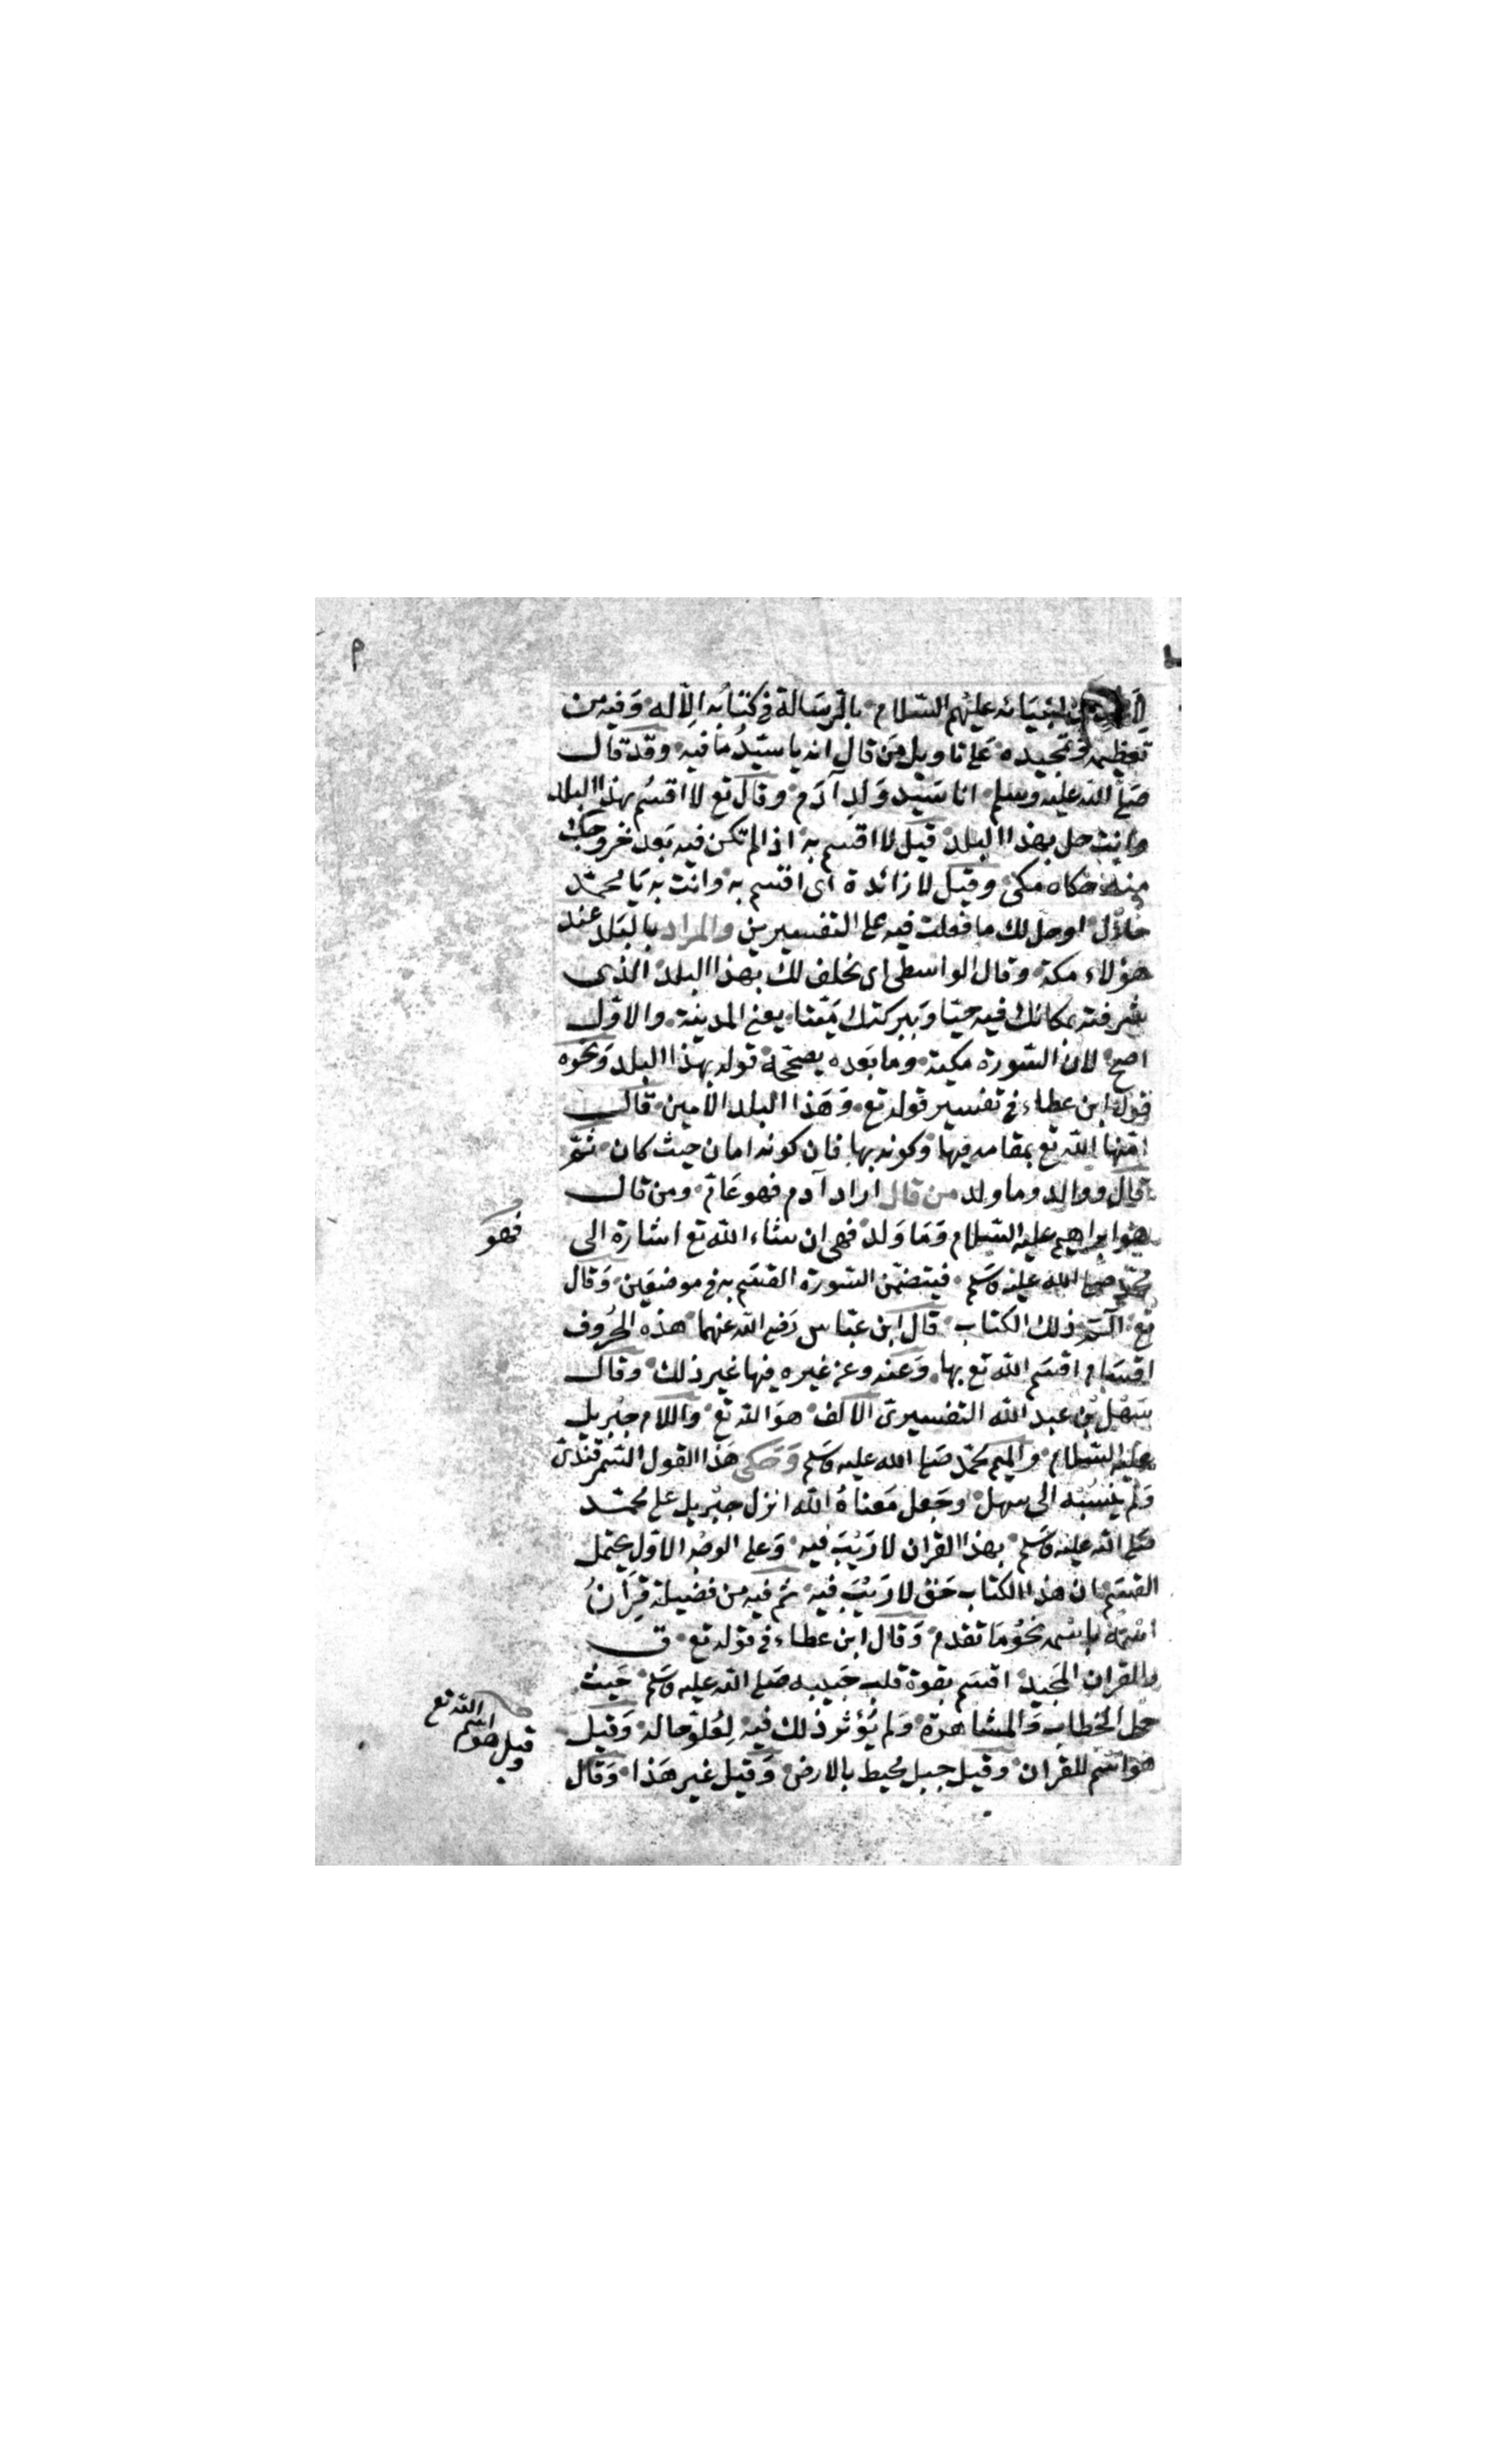 لاحد من انبيائه عليهم السلام بالرسالة في كتابه الا له وفيه من
تعظيمه وتمجيده على تاويل من قال انه يا سيد ما فيه وقد قال
صلى الله عليه وسلم انا سيد ولد آدم وقال تع لا اقسم بهذا البلد
وانت حل بهذا البلد قيل لا اقسم به اذا لم تكن فيه بعد خروجك
منه حكاه مكي وقيل لا زائدة اى اقسم به وانت به يا محمد
حلال او حل لك ما فعلت فيه على التفسيرين والمراد بالبلد عند
هؤلاء مكة وقال الواسطى اى نحلف لك بهذا البلد الذى
شرفته بمكانك فيه حيّا وببركتك ميّتا يعني المدينة والاوّل
اصح لان السّورة مكية وما بعده يصحّحه قوله بهذا البلد ونحوه
قول ابن عطاء في تفسير قوله تع وهذا البلد الامين قال
امّنها الله تع بمقامه فيها وكونه بها فان كونه امان حيث كان ثمّ
قال ووالد وما ولد من قال اراد آدم فهو عامّ ومن قال
هو ابراهيم عليه السّلام وما ولد فهي ان شاء الله تع اشارة الى
محمّد صلى الله عليه وسلم فيتضمّن السّورة القسم به في موضعين وقال
تع الٓمٓ ذلك الكتاب قال ابن عبّاس رضي الله عنهما هذه الحُروف
اقسام اقسم الله تع بها وعنه وعن غيره فيها غير ذلك وقال
سَهْل بْن عبد الله التفسيرى الالف هو الله تع واللام جبريل
عليه السّلام والميم محمّد صلى الله عليه وسلم وحكى هذا القول السّمرقندىّ
ولم ينسبْه الى سهل وجعل معناهُ الله انزل جبريل على محمّد
صلى الله عليه وسلم بهذا القران لا ريْبَ فيه وعلى الوجه الاوّل يحتمل
القسم ان هذا الكتاب حق لا ريْبَ فيه ثم فيه من فضيلة قِرَانُ
اسْمه باسْمه نحْوُ ما تقدم وقال ابن عطاء في قوله تع ق
والقران المجيد اقسم بقوة قلب حبيبه صلى الله عليه وسلم حيث
حمل الخطاب والمشاهدة ولم يُؤثر ذلك فيه لِعُلوّ حاله وقيل
هو اسْم للقران وقيل جبل محيط بالارض وقيل غير هذا وقال
فهو
وقيل هو اسم الله تع